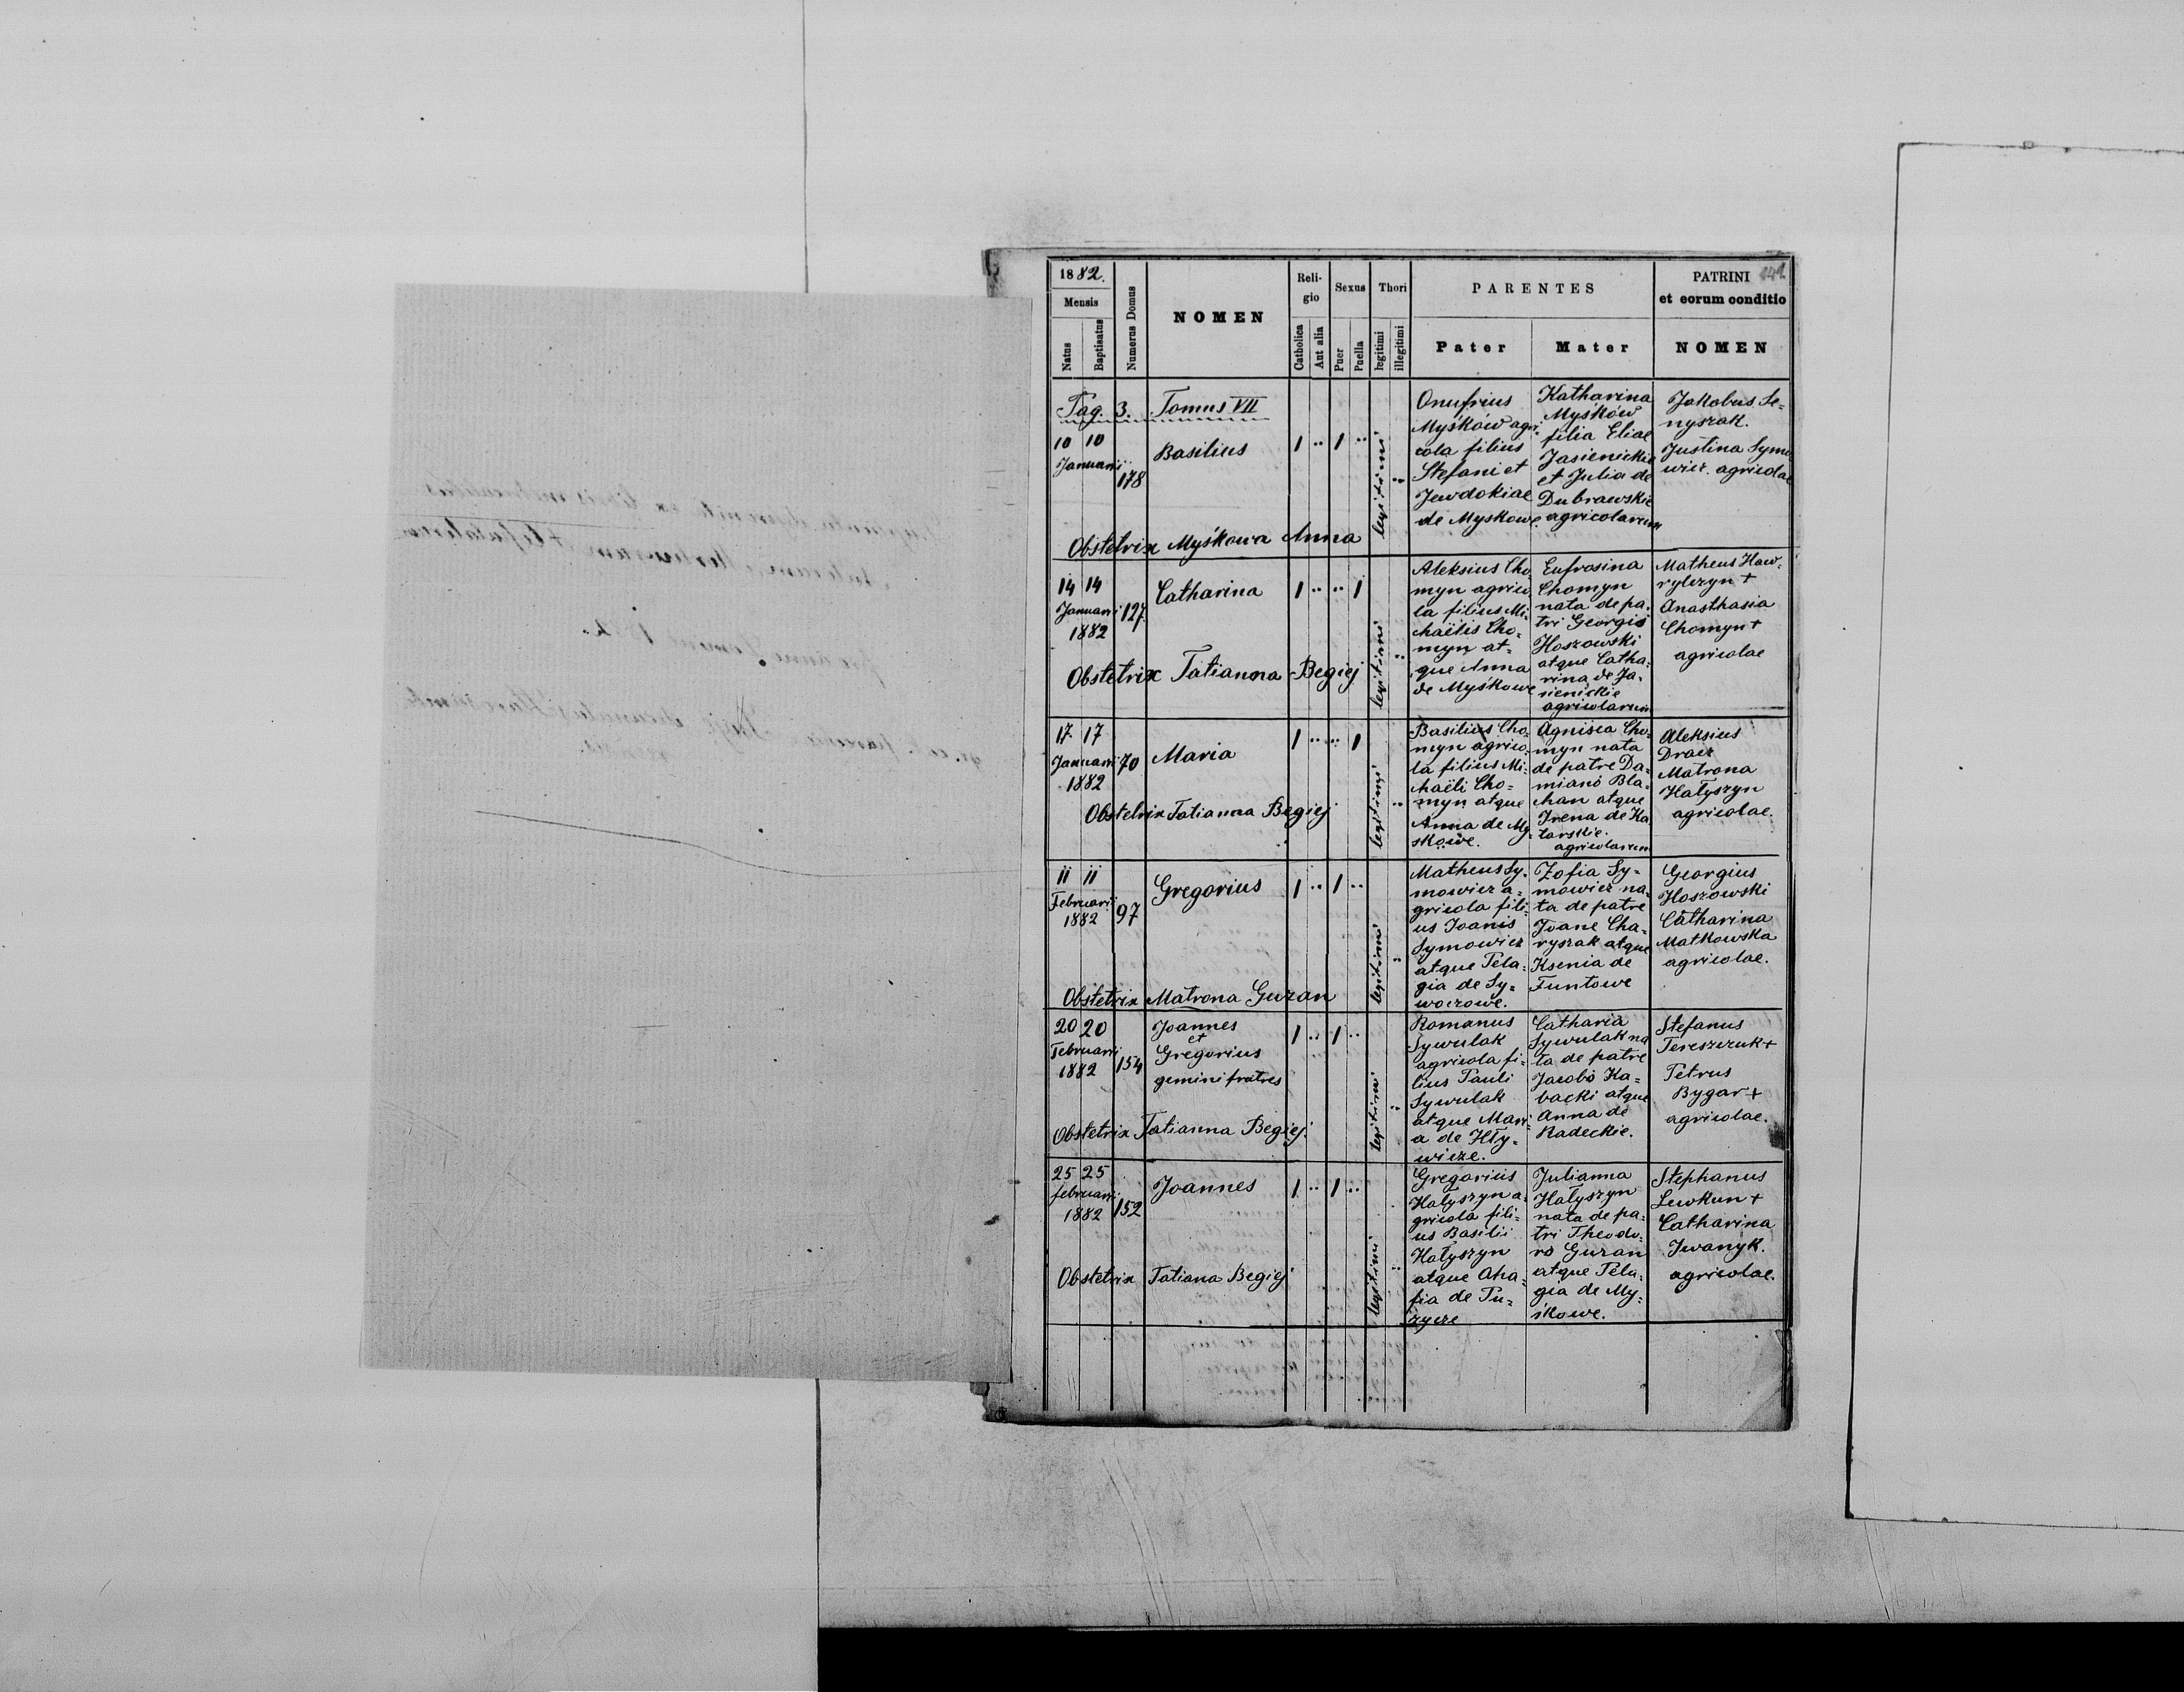 1882.
Mensis
Natus
Baptisatus
Numerus Domus
NOMEN
Religio
Catholica
Aut alia
Sexus
Puer
Puella
Thori
legitimi
illegitimi
PARENTES
Pater
Mater
PATRINI
et eorum conditio
NOMEN
Pag. 3. Tomus VII
10 10
Januarii
178
Basilius
1 .. 1 ..
legitimi
Onufrius
Myśków agri
cola filius
Stefani et
Jewdokiae
de Myskowe.
Katharina
Myśków
filia Eliae
Jasienickie
et Julia de
Dubrawskie
agricolarum
Jakobus Se=
nyszak.
Justina Symo
wicz. agricolae
Obstetrix Myśkowa Anna
14 14
Januarii
1882
127.
Catharina
1 .. .. 1
legitimi
Aleksius Cho
myn agrico=
la filius Mi=
chaëlis Cho=
myn at=
que Anna
de Myśkowe
Eufrosina
Chomyn
nata de pa=
tri Georgio
Hoszowski
atque Catha=
rina de Ja=
sienickie
agricolarum
Matheus Haw=
rylczyn +
Anasthasia
Chomyn +
agricolae
Obstetrix Tatianna Begiej
17. 17
Januarii
1882
70
Maria
1 .. .. 1
legitimi
Basilius Cho=
myn agrico=
la filius Mi=
chaëli Cho=
myn atque
Anna de My=
skowe.
Agnisia Cho=
myn nata
de patre Da=
miano Bla=
chan atque
Irena de Ka
tarskie.
agricolarum
Aleksius
Dracz
Matrona
Hałyszyn
agricolae.
Obstetrix Tatianna Begiej
11 11
Februarii
1882
97
Gregorius
1 .. 1 ..
legitimi
Matheus Sy=
mowicz a=
gricola fili=
us Joanis
Symowicz
atque Pela=
gia de Sy=
woczowe.
Zofia Sy=
mowicz na=
ta de patre
Joane Cha=
ryszak atque
Ksenia de
Funtowe
Georgius
Hoszowski
Catharina
Matkowska
agricolae.
Obstetrix Matrona Guzan
20 20
Februarii
1882
154
Joannes
et
Gregorius
gemini fratres
1 .. 1 ..
legitimi
Romanus
Sywulak
agricola fi=
lius Pauli
Sywulak
atque Mari
a de Hły=
wicze.
Catharia
Sywulak na
ta de patre
Jacobo Ka=
backi atque
Anna de
Radeckie.
Stefanus
Tereszczuk +
Petrus
Bygar +
agricolae.
Obstetrix Tatianna Begiej.
25 25
februarii
1882
152
Joannes
1. .. 1 ..
legitimi
Gregorius
Hałyszyn a=
gricola fili=
us Basilii
Hałyszyn
atque Aha=
fia de Pu=
zycze
Julianna
Hałyszyn
nata de pa=
tri Theodo=
ro Guzan
atque Pela=
gia de My=
śkowe.
Stephanus
Lewkun +
Catharina
Iwanyk.
agricolae.
Obstetrix Tatiana Begiej